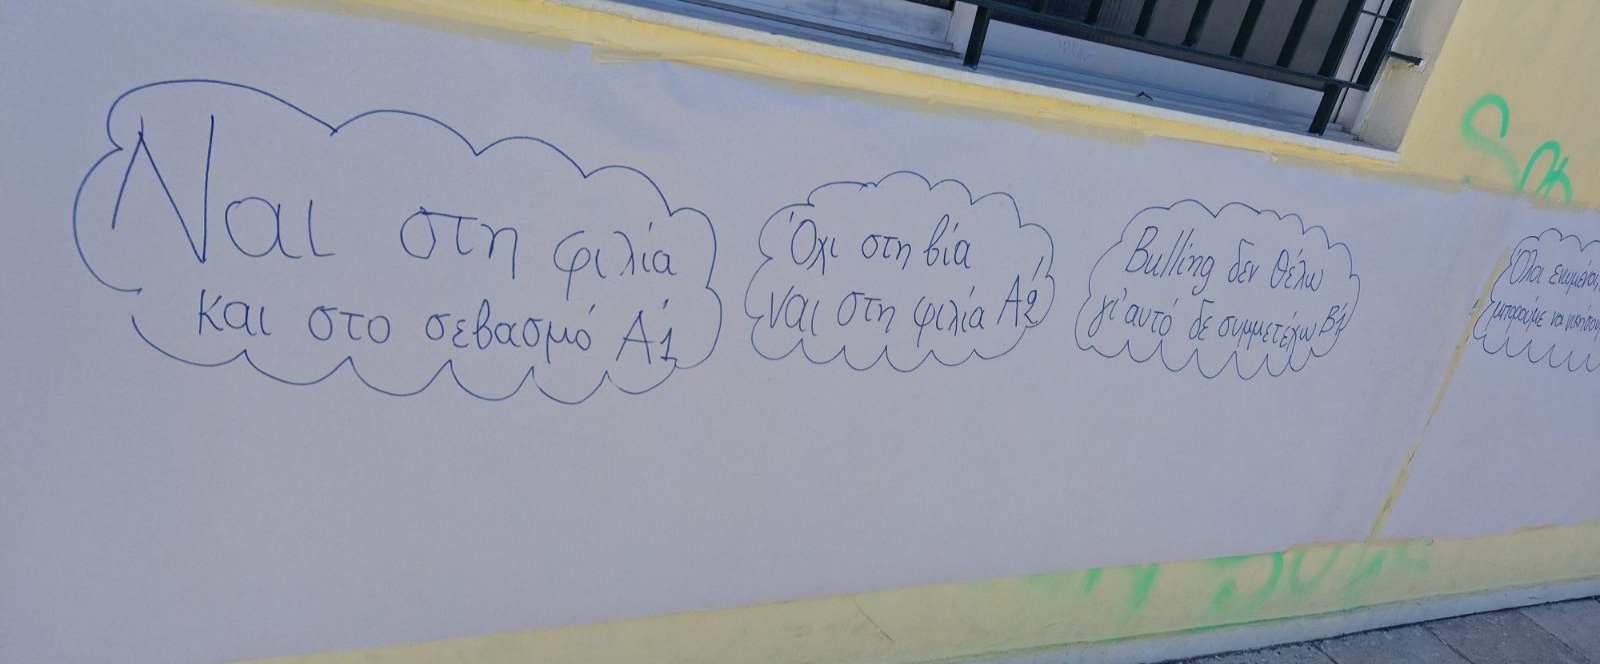 Ναι στη φιλία
και στο σεβασμό Α'1
Όχι στη βία
ναι στη φιλία Α'2
Bulling δεν θέλω
γι' αυτό δε συμμετέχω Β'1
Όλοι ενωμένοι
μπορούμε να